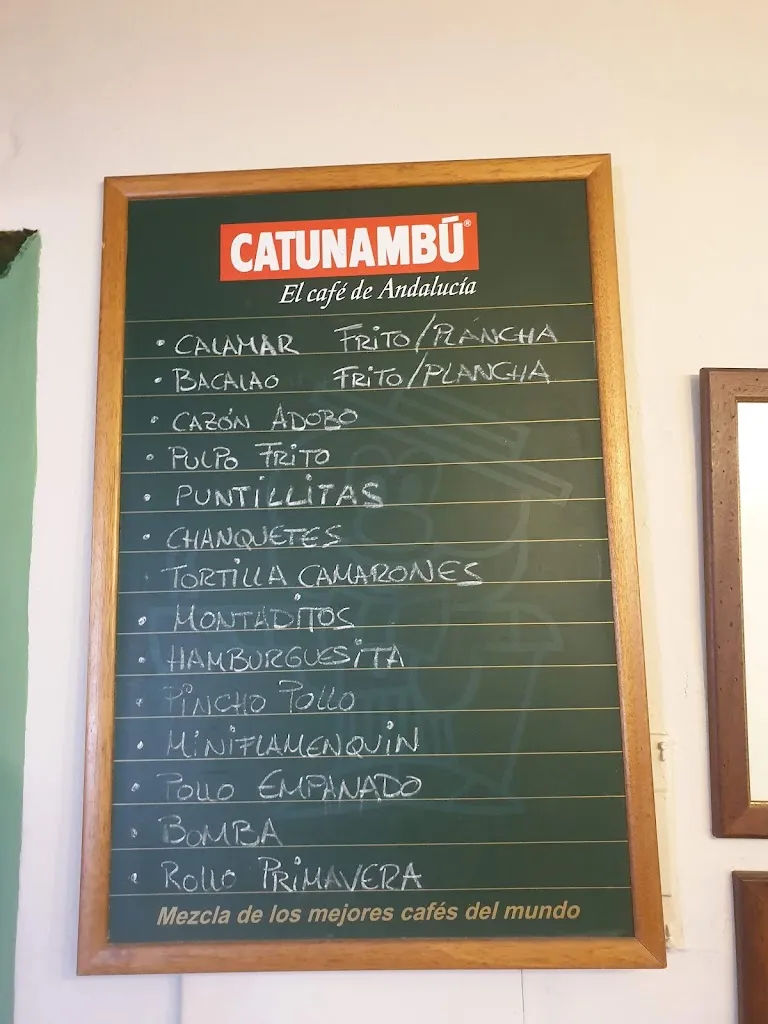 CATUNAMBÚ®
El café de Andalucía
• CALAMAR FRITO/PLANCHA
• BACALAO FRITO/PLANCHA
• CAZÓN ADOBO
• PULPO FRITO
• PUNTILLITAS
• CHANQUETES
TORTILLA CAMARONES
• MONTADITOS
• HAMBURGUESITA
• PINCHO POLLO
• MINIFLAMENQUIN
• POLLO EMPANADO
• BOMBA
• ROLLO PRIMAVERA
Mezcla de los mejores cafés del mundo